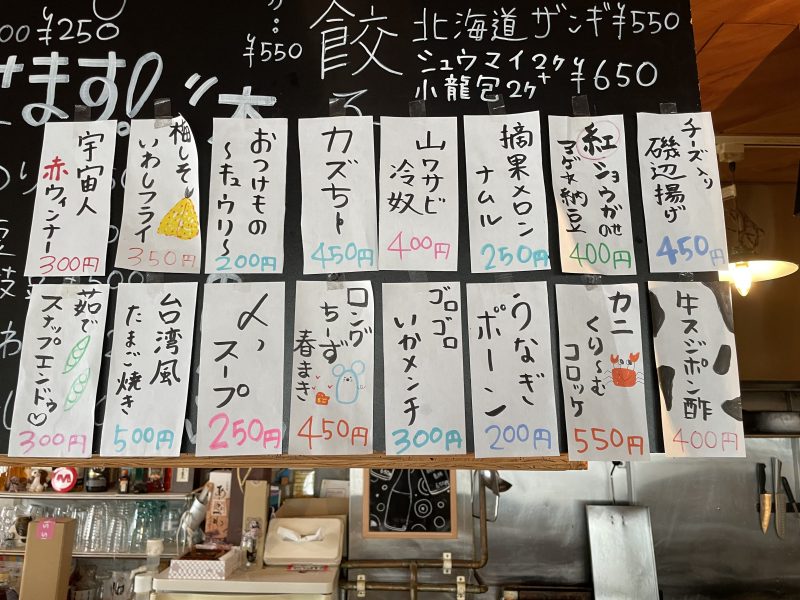 ¥250
¥550
餃
北海道 ザンギ¥550
シュウマイ2ケ
小龍包2ケ ¥650
ます!
チーズ入り
磯辺揚げ
450円
紅ショウガのせ
納豆
400円
摘果メロン
ナムル
250円
山ワサビ
冷奴
400円
カズちー
450円
おつけもの
〜キュウリ〜
200円
梅しそ
いわしフライ
350円
宇宙人
赤ウィンナー
300円
牛スジポン酢
400円
カニ
くりーむ
コロッケ
550円
うなぎ
ボーン
200円
ゴロゴロ
いかメンチ
300円
ロング
ちーず
春まき
450円
〆
スープ
250円
台湾風
たまご焼き
500円
茹で
スナップエンドゥ♡
300円